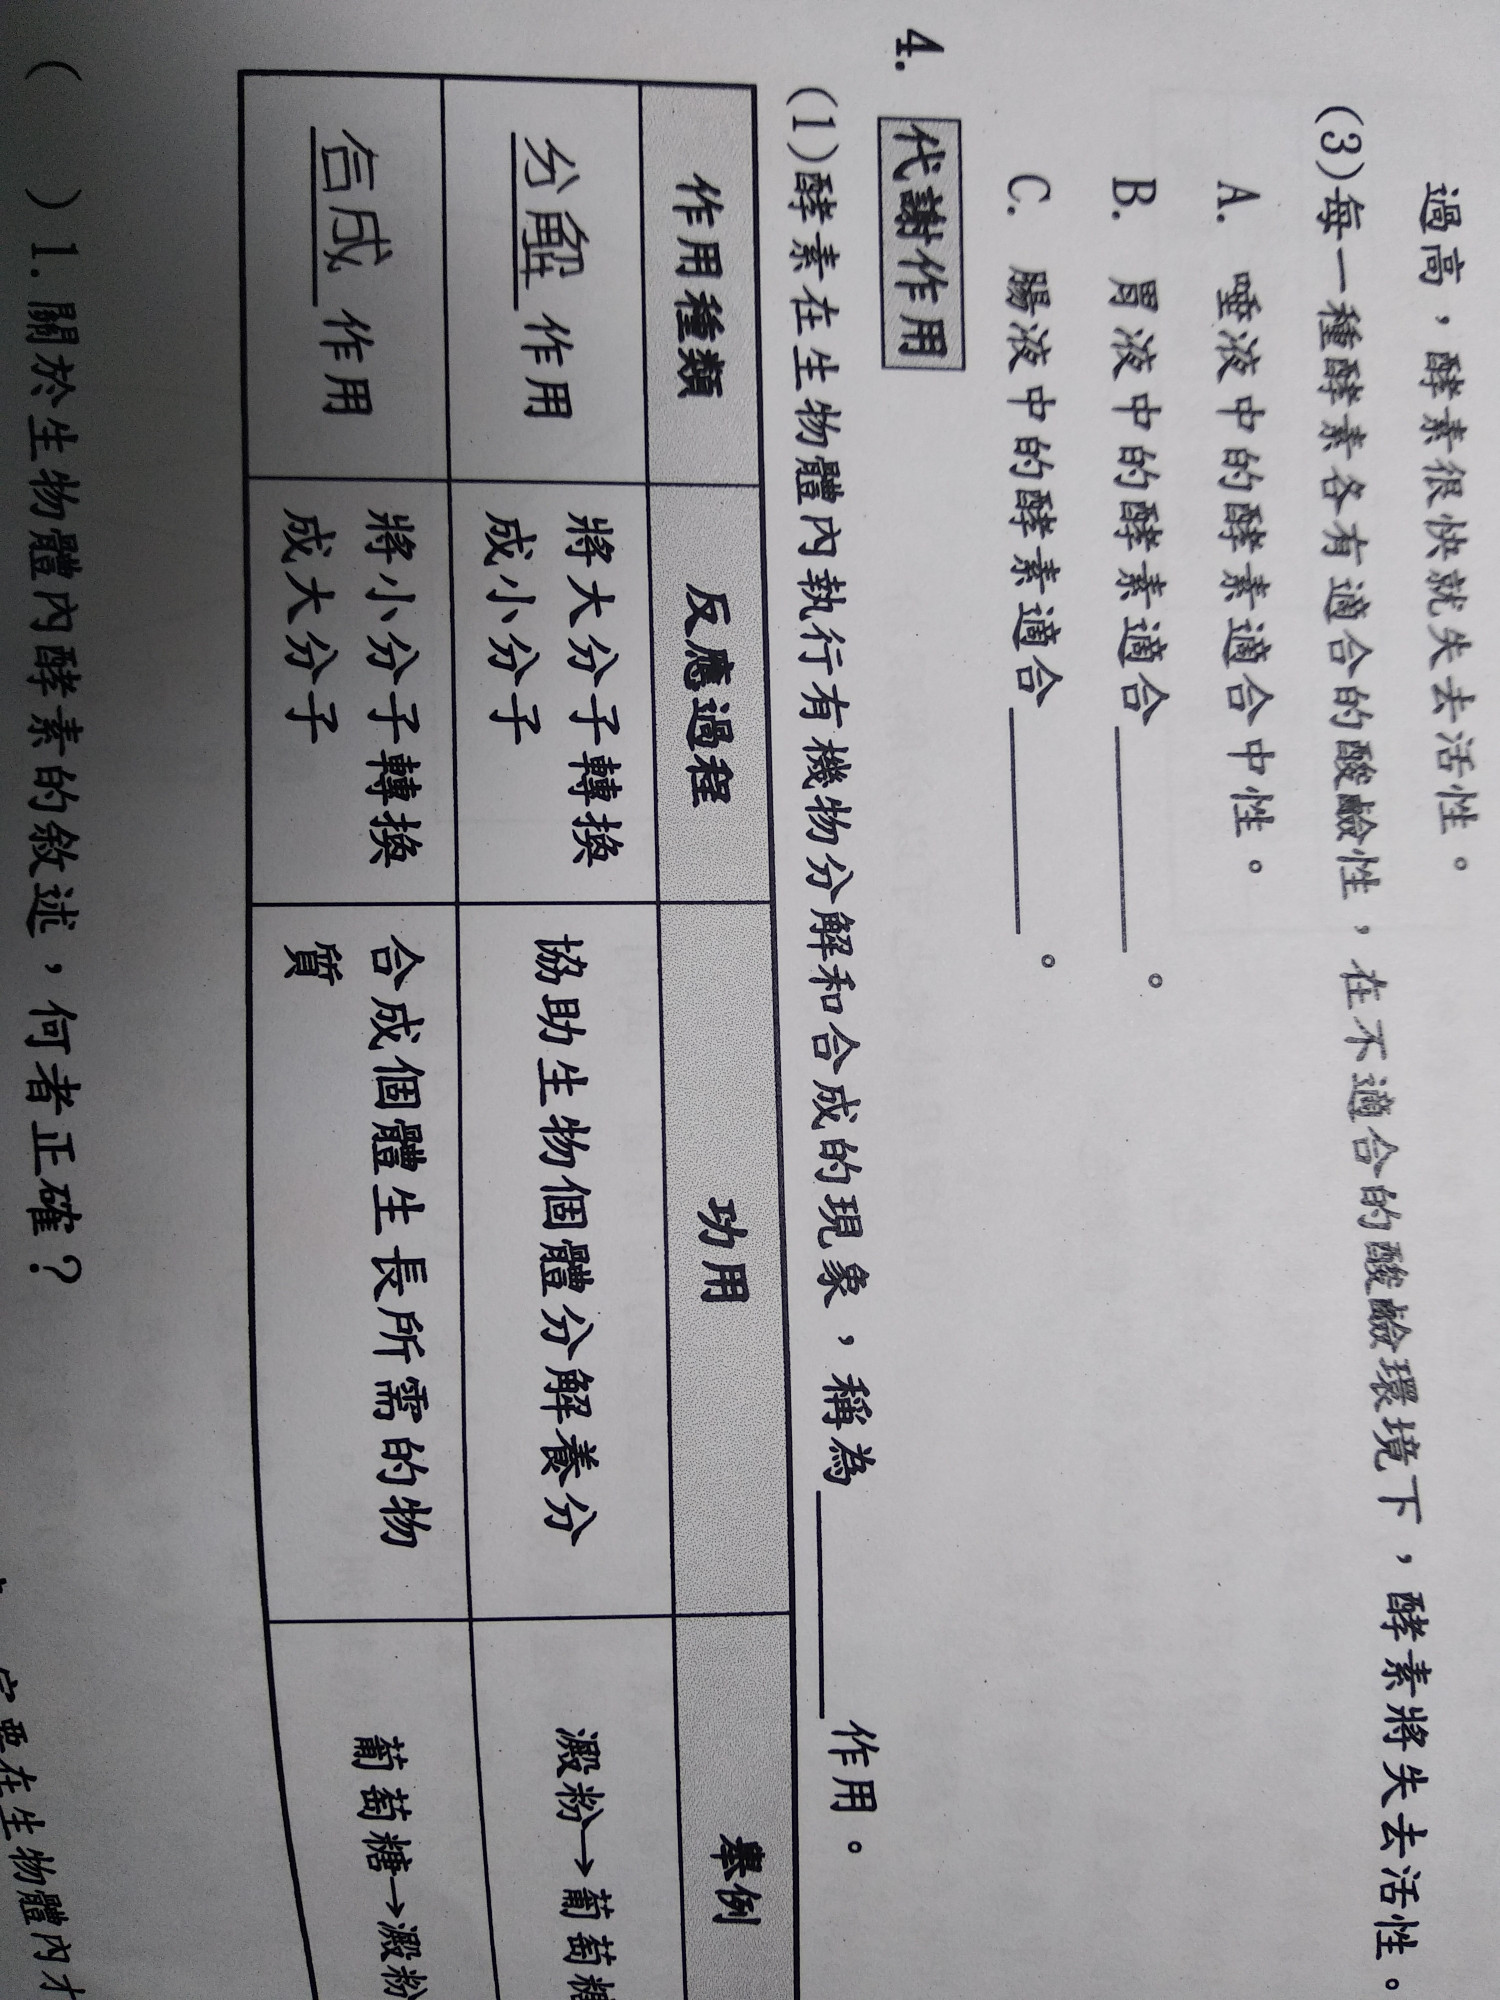 過高，酵素很快就失去活性。
(3)每一種酵素各有適合的酸鹼性，在不適合的酸鹼環境下，酵素將失去活性。
A. 唾液中的酵素適合中性。
B. 胃液中的酵素適合________。
C. 腸液中的酵素適合________。
4. 代謝作用
(1)酵素在生物體內執行有機物分解和合成的現象，稱為________作用。
作用種類 反應過程 功用 舉例
分解作用 將大分子轉換成小分子 協助生物個體分解養分 澱粉→葡萄糖
合成作用 將小分子轉換成大分子 合成個體生長所需的物質 葡萄糖→澱粉
( )1.關於生物體內酵素的敘述，何者正確？
要在生物體內才